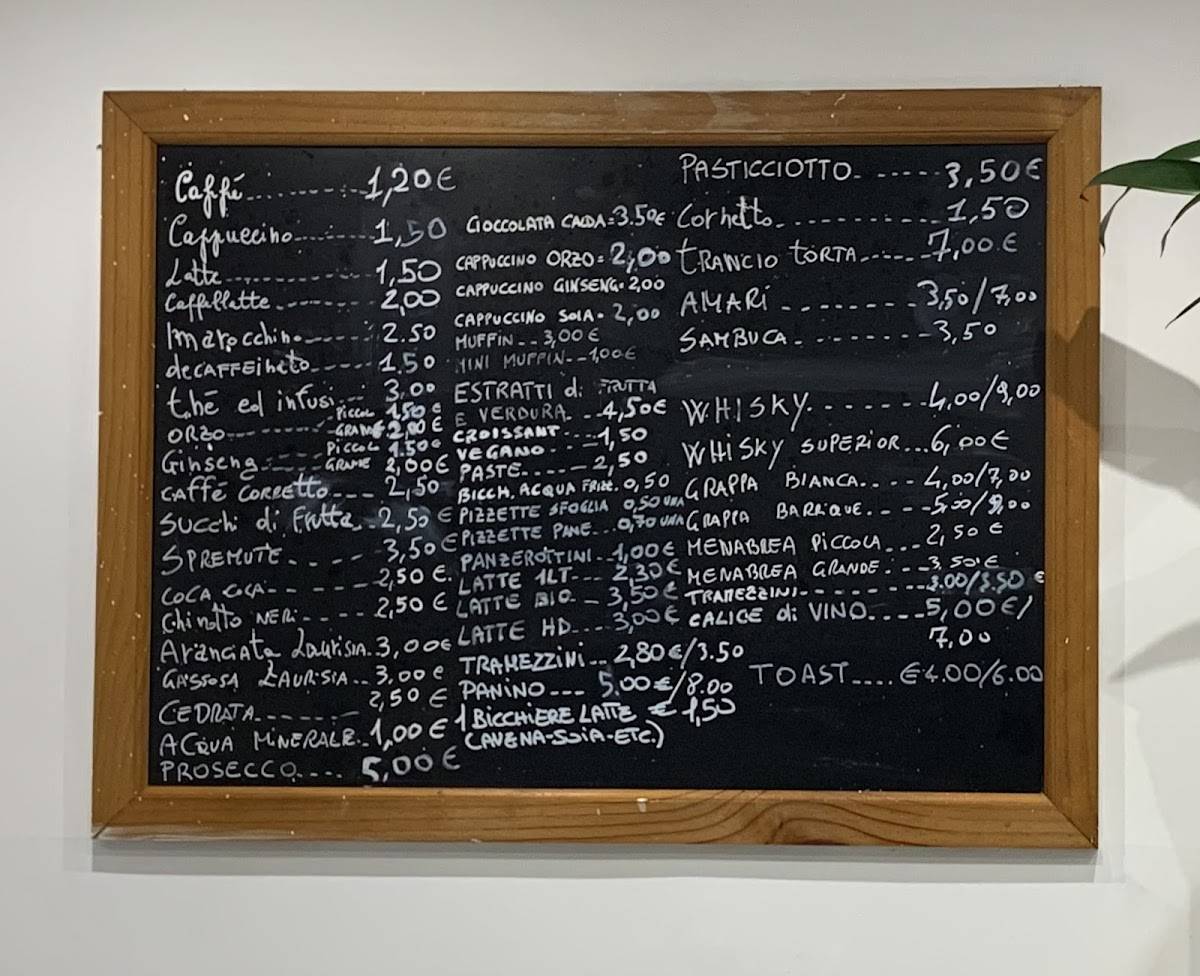 Caffé 1,20€
Cappuccino 1,50
Latte 1,50
Caffellatte 2,00
Marocchino 2.50
deCAFFEinato 1,50
thé ed infusi 3,00
ORZO PICCOL 1,50 €
GRANDE 2,00 €
Ginseng PICCOL 1.50€
GRANDE 2,00€
CAFFÈ CORRETTO 2,50
SUCCHI di Frutta 2,50 €
SPREMUTE 3,50€
COCA COLA 2,50 €.
Chinotto NERI 2,50 €
Aranciata LauriSIA 3,00€
GASSOSA LAURISIA 3,00 €
CEDRATA 2,50 €
ACQUA MINERALE 1,00€
PROSECCO 5,00€
CIOCCOLATA CALDA=3.50€
CAPPUCCINO ORZO=2,00
CAPPUCCINO GINSENG=2,00
CAPPUCCINO SOIA=2,00
MUFFIN 3,00€
MINI MUFFIN 1,00€
ESTRATTI di FRUTTA
E VERDURA 4,50€
CROISSANT
VEGANO 1,50
PASTE 2,50
BICCH. ACQUA FRIZZ. 0,50
PIZZETTE SFOGLIA 0,50 UNA
PIZZETTE PANE 0,70 UNA
PANZEROTTINI 1,00€
LATTE 1LT 2,30€
LATTE BIO 3,50€
LATTE HD 3,00€
TRAMEZZINI 2,80€/3.50
PANINO 5,00€/8.00
1 BICCHIERE LATTE € 1,50
(AVENA-SOIA-ETC.)
PASTICCIOTTO 3,50€
Cornetto 1,50
tRANCIO tORTA 7,00€
AMARI 3,50/7,00
SAMBUCA 3,50
WHISKY 4,00/9,00
WHISKY SUPERIOR 6,00€
GRAPPA BIANCA 4,00/7,00
GRAPPA BARRIQUE 5,00/9,00
MENABREA PICCOLA 2,50€
MENABREA GRANDE 3,50€
TRAMEZZINI 3.00/3.50 €
CALICE di VINO 5,00€/
7,00
TOAST €4.00/6.00